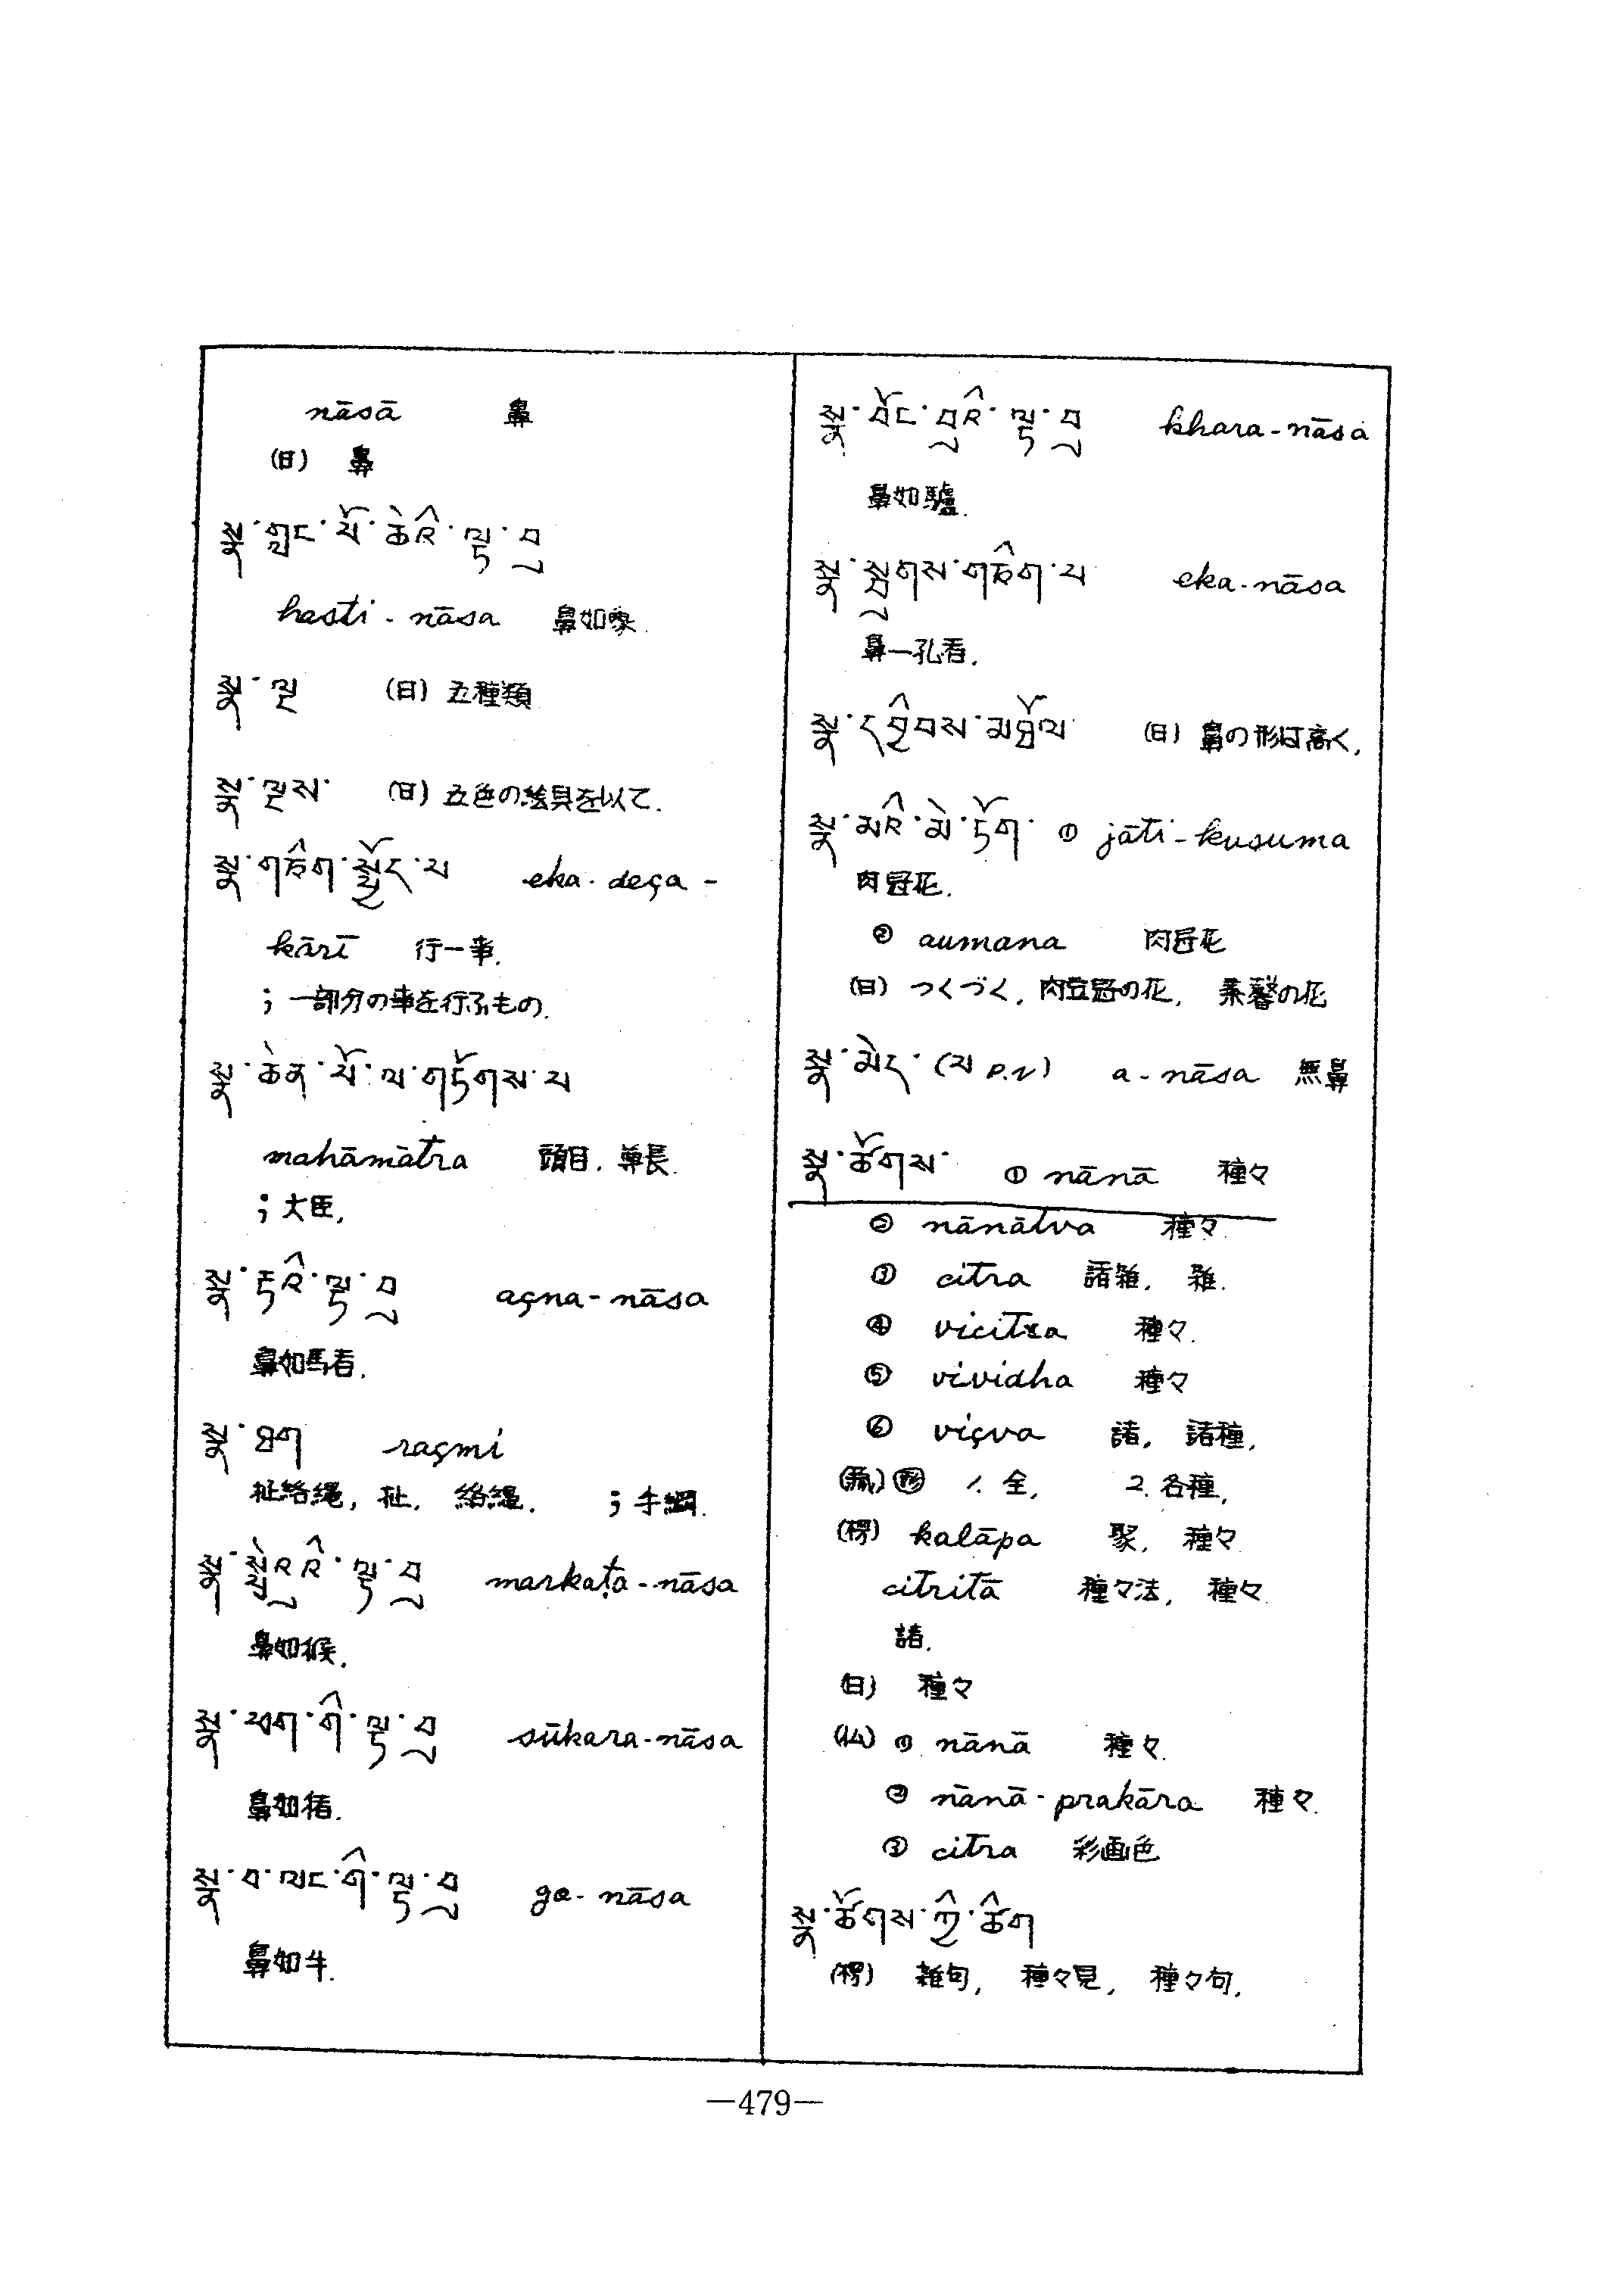 nāsā 鼻
(日) 鼻
སྣ་གླང་པོ་ཆེའི་ལྟ་བུ
hasti - nāsa 鼻如象.
སྣ་ལྔ (日) 五種類
སྣ་ལྔས་ (日) 五色の絵具を以て.
སྣ་གཅིག་སྤྱོད་པ eka-deça -
kārī 行一事.
; 一部分の事を行ふもの.
སྣ་ཆེན་པོ་ལ་གཏོགས་པ
mahāmātra 頭目, 尊長.
; 大臣,
སྣ་རྟའི་ལྟ་བུ açna-nāsa
鼻如馬者.
སྣ་ཐག raçmi
扯絡繩, 扯, 絡繩. ; 手綱.
སྣ་སྤྲེའུའི་ལྟ་བུ markaṭa-nāsa
鼻如猴.
སྣ་ཕག་གི་ལྟ་བུ sūkara-nāsa
鼻如猪.
སྣ་བ་ལང་གི་ལྟ་བུ go-nāsa
鼻如牛.
སྣ་བོང་བུའི་ལྟ་བུ khara-nāsa
鼻如驢.
སྣ་སྦུགས་གཅིག་པ eka-nāsa
鼻一孔者.
སྣ་དབྱིབས་མཐོལ (日) 鼻の形は高く,
སྣ་མའི་མེ་ཏོག་ ① jāti-kusuma
肉冠花.
② aumana 肉冠花
(日) つくづく, 肉豆冠の花, 素馨の花
སྣ་མེད་ (པ P.V) a-nāsa 無鼻
སྣ་ཚོགས་ ① nānā 種々
② nānātva 種々.
③ citra 諸雜, 雜.
④ vicitra 種々.
⑤ vividha 種々
⑥ viçva 諸, 諸種,
㊟ 1. 全, 2. 各種,
(楞) kalāpa 聚, 種々
citritā 種々法, 種々
諸.
(日) 種々
(仏) ① nānā 種々.
② nānā-prakāra 種々.
③ citra 彩画色
སྣ་ཚོགས་ཀྱི་ཚིག
(楞) 雑句, 種々見, 種々句,
—479—